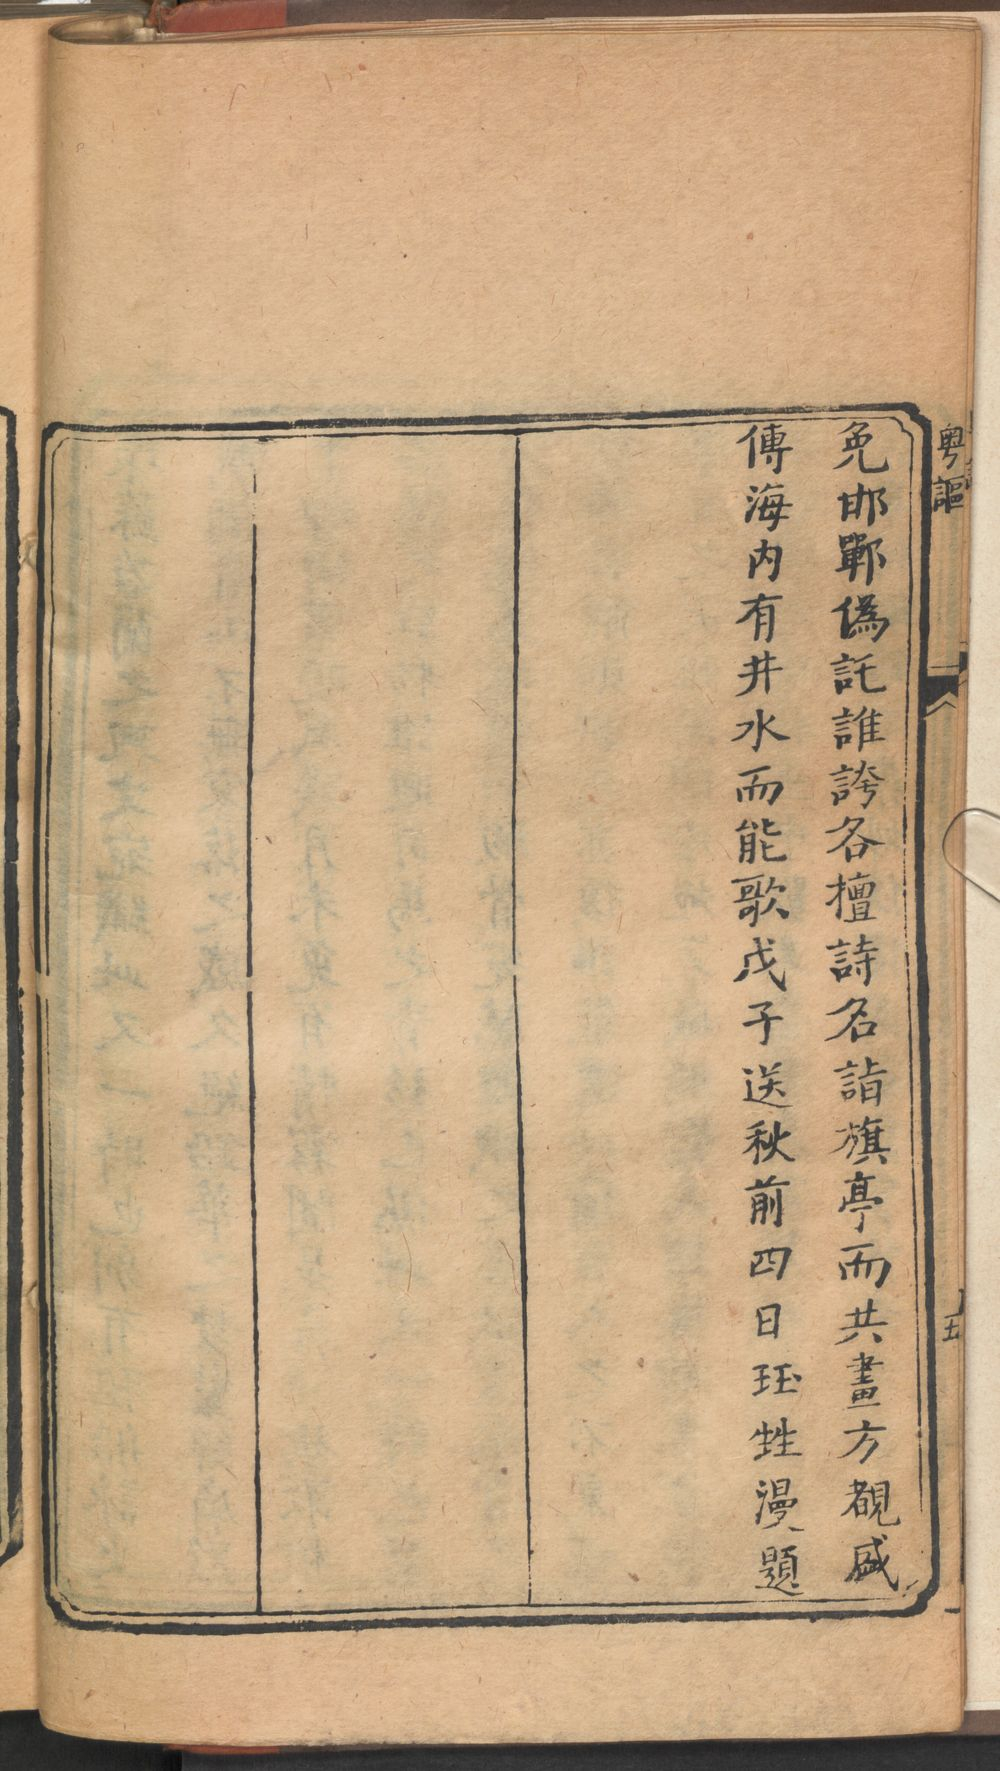 免邯鄲偽託誰誇各擅詩名詣旗亭而共畫方覩盛
傳海內有井水而能歌戊子送秋前四日珏甡漫題
粵謳
五